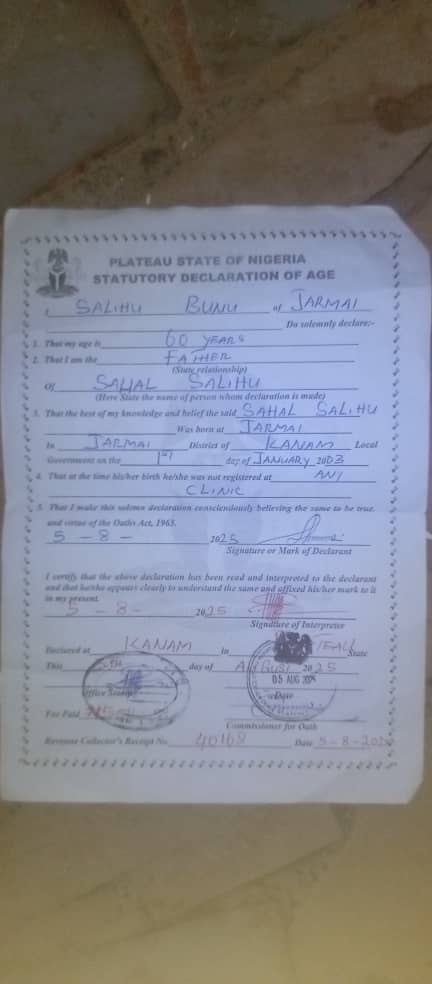 PLATEAU STATE OF NIGERIA
STATUTORY DECLARATION OF AGE
I SALIHU BUNU of JARMAI
Do solemnly declare:-
1. That my age is 60 YEARS
2. That I am the FATHER
(State relationship)
Of SAHAL SALIHU
(Here State the name of person whom declaration is made)
3. That the best of my knowledge and belief the said SAHAL SALIHU
Was born at JARMAI
In JARMAI District of KANAM Local
Government on the 1st day of JANUARY 2003
4. That at the time his/her birth he/she was not registered at ANY
CLINIC
5. That I make this solemn declaration conscienciously believing the same to be true.
and virtue of the Oaths Act, 1963.
5-8- 2025
Signature or Mark of Declarant
I certify that the above declaration has been read and interpreted to the declarant
and that he/she appears clearly to understand the same and affixed his/her mark to it
in my present.
5-8- 2025
Signature of Interpreter
Declared at KANAM in State
This day of August 2025
05 AUG 2025
Office Stamp Date
Fee Paid
Commissioner for Oath
Revenue Collector's Receipt No. 40168 Date 5-8-2025